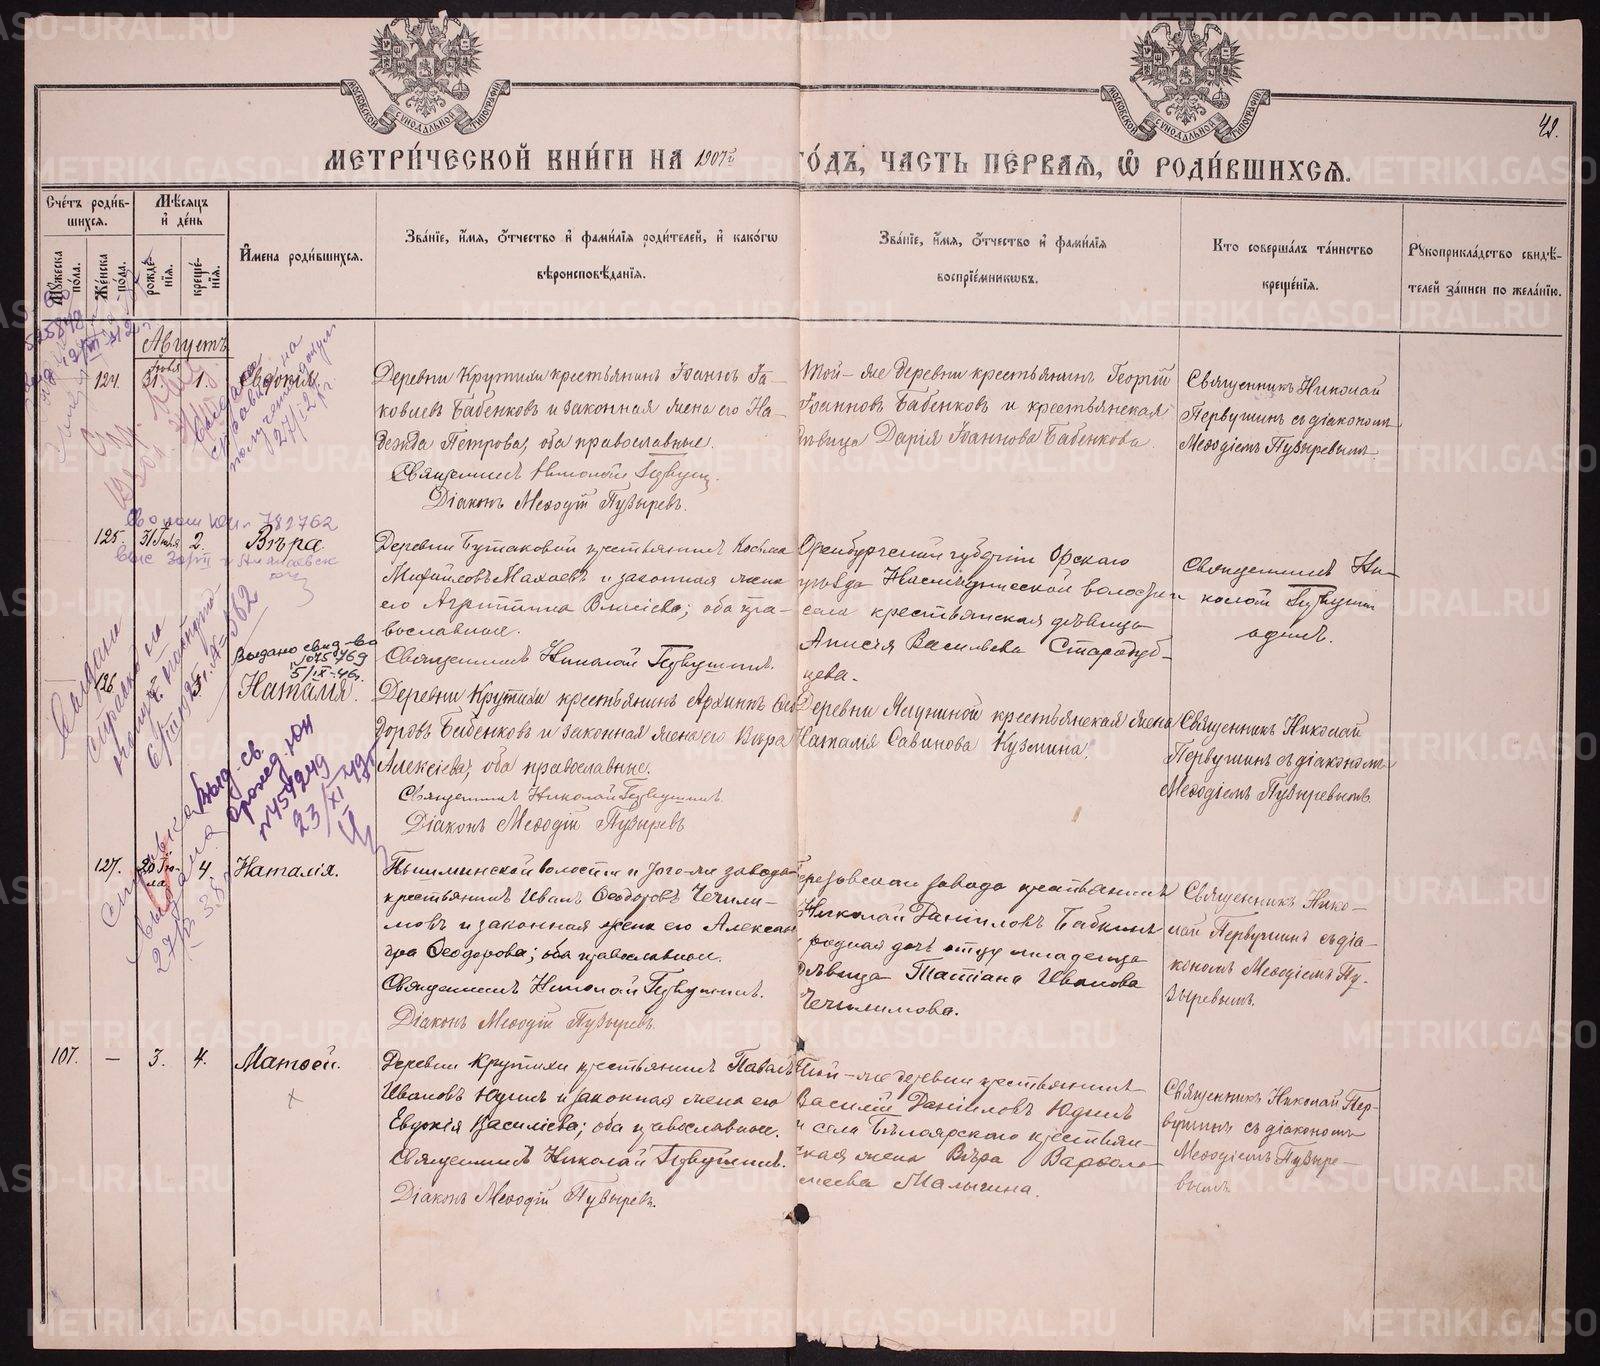 МОСКОВСКОЙ СѴНОДАЛЬНОЙ ТИПОГРАФІИ
МОСКОВСКОЙ СѴНОДАЛЬНОЙ ТИПОГРАФІИ
42.
МЕТРИ́ЧЕСКОЙ КНИ́ГИ НА 1907й ГО́ДЪ, ЧАСТЬ ПЕ́РВАЯ, Ѡ РОДИ́ВШИХСЯ.
Сче́тъ роди́в-
шихся.
Мѣсяцъ
и де́нь
Мꙋжеска
по́ла.
Же́нска
по́ла.
рожде́-
нія.
креще́-
нія.
И́мена роди́вшихся.
Зва́ніе, и́мя, ѻ́тчество и фами́лія роди́телей, и како́гѡ
вѣроисповѣ́данія.
Зва́ніе, и́мя, ѻ́тчество и фами́лія
воспрїе́мникѡвъ.
Кто соверша́лъ та́инство
креще́нія.
Рꙋкоприкла́дство свидѣ́-
телей за́писи по жела́нію.
Августъ
124.
31 Іюля
1.
Евдокія.
Деревни Крутихи крестьянинъ Іоаннъ Іа-
ковлевъ Бабенковъ и законная жена его На-
дежда Петрова, оба православные.
Священникъ Николай Первушин.
Діаконъ Меѳодій Пузыревъ.
Той-же деревни крестьянинъ Георгій
Іоанновъ Бабенковъ и крестьянская
дѣвица Дарія Іоаннова Бабенкова.
Священникъ Николай
Первушинъ съ діакономъ
Меѳодіемъ Пузыревымъ.
125.
31 Іюля
2.
Вѣра.
Деревни Бутаковой крестьянинъ Косьма
Михайловъ Махаевъ и законная жена
его Агриппина Власіева; оба пра-
вославные.
Священникъ Николай Первушинъ.
Оренбургской губерніи Орскаго
уѣзда Наслѣднической волости и
села крестьянская дѣвица
Анисія Васильева Стародуб-
цева.
Священникъ Ни-
колай Первушин
одинъ.
Выдано свид-во
№075469
5/IX-46г.
126
Наталія.
Деревни Крутихи крестьянинъ Архиппъ Ѳео
доровъ Бабенковъ и законная жена его Вѣра
Алексіева, оба православные.
Священникъ Николай Первушинъ.
Діаконъ Меѳодій Пузыревъ
Деревни Ялуниной крестьянская жена
Наталія Савинова Кузмина.
Священникъ Николай
Первушинъ съ діакономъ
Меѳодіемъ Пузыревымъ.
127.
20 Ію-
ля
4.
Наталія.
Пышминской волости и того-же завода
крестьянинъ Иванъ Ѳеодоровъ Чечили-
мовъ и законная жена его Алексан
дра Ѳеодорова; оба православные.
Священникъ Николай Первушинъ.
Діаконъ Меѳодій Пузыревъ.
Березовскаго завода крестьянинъ
Николай Даніиловъ Бабкинъ
родная дочь отцу младенца
дѣвица Татіана Иванова
Чечилимова.
Священникъ Нико-
лай Первушинъ съ діа-
кономъ Меѳодіемъ Пу-
зыревымъ.
107.
—
3.
4.
Матѳей.
Деревни Крутихи крестьянинъ Павелъ
Ивановъ Юдинъ и законная жена его
Евдокія Василіева; оба православные.
Священникъ Николай Первушинъ.
Діаконъ Меѳодій Пузыревъ.
Той-же деревни крестьянинъ
Василій Даніиловъ Юдинъ
и села Бѣлоярскаго крестьян-
ская жена Вѣра Варѳоло-
меева Малыгина.
Священникъ Николай Пер-
вушинъ съ діакономъ
Меѳодіемъ Пузыре-
вымъ
METRIKI.GASO-URAL.RU